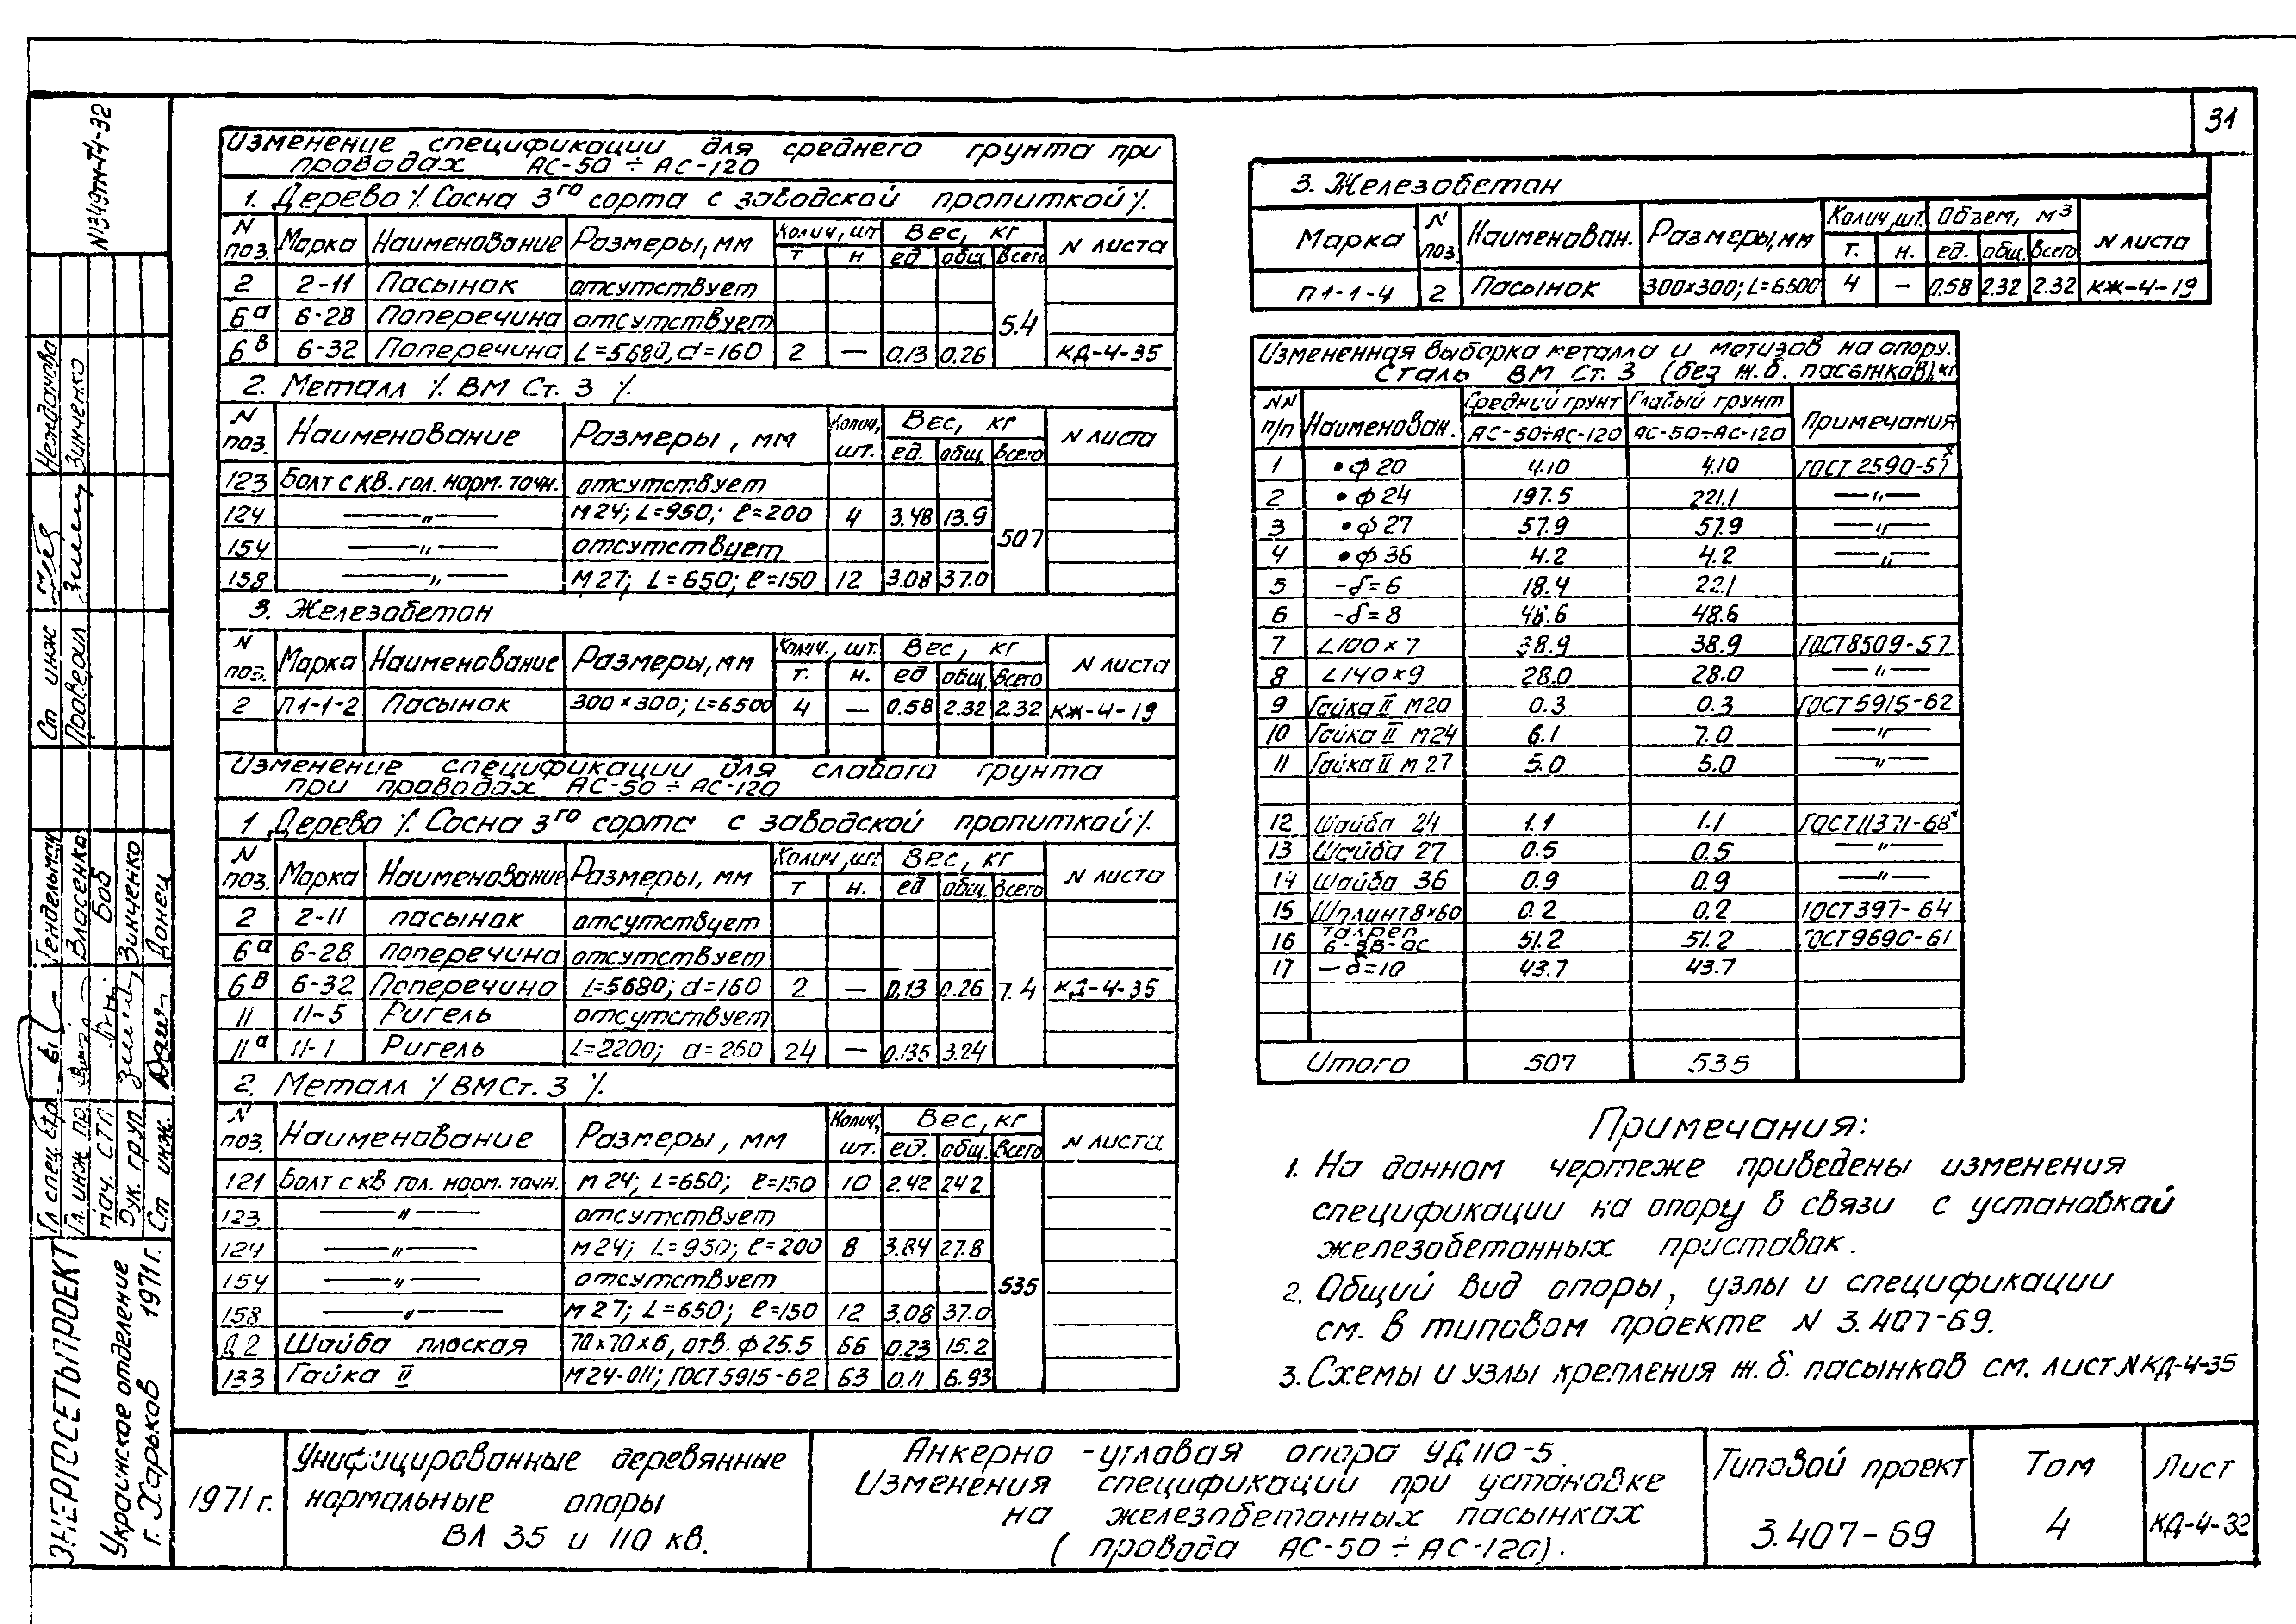 31
N1349тм-Т4-32
Изменение спецификации для среднего грунта при
проводах АС-50 ÷ АС-120
1. Дерево ٪ Сосна 3го сорта с заводской пропиткой ٪.
N поз. Марка Наименование Размеры, мм Колич, шт Вес, кг N листа
т н ед общ. Всего
2 2-11 Пасынок отсутствует
6а 6-28 Поперечина отсутствует 5.4
6в 6-32 Поперечина L=5680, d=160 2 — 0.13 0.26 КД-4-35
2. Металл ٪ ВМ Ст. 3 ٪.
N поз. Наименование Размеры, мм Колич, шт. Вес, кг N листа
ед. общ. Всего
123 Болт с кв. гол. норм. точн. отсутствует
124 —"— М24; L=950; ℓ=200 4 3.48 13.9
154 —"— отсутствует 507
158 —"— М27; L=650; ℓ=150 12 3.08 37.0
3. Железобетон
N поз. Марка Наименование Размеры, мм Колич., шт. Вес, кг N листа
т. н. ед общ. Всего
2 П1-1-2 Пасынок 300×300; L=6500 4 — 0.58 2.32 2.32 КЖ-4-19
Изменение спецификации для слабого грунта
при проводах АС-50 ÷ АС-120
1 Дерево ٪ Сосна 3го сорта с заводской пропиткой ٪.
N поз. Марка Наименование Размеры, мм Колич, шт Вес, кг N листа
т н. ед общ. Всего
2 2-11 пасынок отсутствует
6а 6-28 Поперечина отсутствует
6в 6-32 Поперечина L=5680; d=160 2 — 0.13 0.26 7.4 КД-4-35
11 11-5 Ригель отсутствует
11а 11-1 Ригель L=2200; d=260 24 — 0.135 3.24
2. Металл ٪ ВМ Ст. 3 ٪.
N поз. Наименование Размеры, мм Колич, шт. Вес, кг N листа
ед. общ. Всего
121 Болт с кв гол. норм. точн. М24; L=650; ℓ=150 10 2.42 24.2
123 —"— отсутствует
124 —"— М24; L=950; ℓ=200 8 3.84 27.8
154 —"— отсутствует 535
158 —"— М27; L=650; ℓ=150 12 3.08 37.0
Д2 Шайба плоская 70×70×6, отв. ф25.5 66 0.23 15.2
133 Гайка II М24-011; ГОСТ 5915-62 63 0.11 6.93
3. Железобетон
Марка N поз. Наименован. Размеры, мм Колич, шт. Объем, м3 N листа
т. н. ед. общ. Всего
П1-1-4 2 Пасынок 300×300; L=6500 4 — 0.58 2.32 2.32 КЖ-4-19
Измененная выборка металла и метизов на опору.
Сталь ВМ Ст. 3 (без ж.б. пасынков), кг
NN п/п Наименован. Средний грунт Слабый грунт Примечания
АС-50÷АС-120 АС-50÷АС-120
1 •ф20 4.10 4.10 ГОСТ 2590-57х
2 •ф24 197.5 221.1 —"—
3 •ф27 57.9 57.9 —"—
4 •ф36 4.2 4.2 —"—
5 -δ=6 18.4 22.1
6 -δ=8 48.6 48.6
7 L100×7 38.9 38.9 ГОСТ 8509-57
8 L140×9 28.0 28.0 —"—
9 Гайка II М20 0.3 0.3 ГОСТ 5915-62
10 Гайка II М24 6.1 7.0 —"—
11 Гайка II М27 5.0 5.0 —"—
12 Шайба 24 1.1 1.1 ГОСТ 11371-68х
13 Шайба 27 0.5 0.5 —"—
14 Шайба 36 0.9 0.9 —"—
15 Шплинт 8×60 0.2 0.2 ГОСТ 397-64
16 Талреп 6-3В-ОС 51.2 51.2 ГОСТ 9690-61
17 -δ=10 43.7 43.7
Итого 507 535
Примечания:
1. На данном чертеже приведены изменения
спецификации на опору в связи с установкой
железобетонных приставок.
2. Общий вид опоры, узлы и спецификации
см. в типовом проекте N 3.407-69.
3. Схемы и узлы крепления ж.б. пасынков см. лист N КД-4-35
1971 г.
Унифицированные деревянные
нормальные опоры
ВЛ 35 и 110 кв.
Анкерно-угловая опора УД110-5.
Изменения спецификации при установке
на железобетонных пасынках
(провода АС-50 ÷ АС-120).
Типовой проект
3.407-69
Том
4
Лист
КД-4-32
ЭНЕРГОСЕТЬПРОЕКТ
Украинское отделение
г. Харьков 1971 г.
Гл. спец. стр. Гендельман
Гл. инж пр. Власенко
Нач. СТП Боб
Рук. груп. Зинченко
Ст инж. Донец
Ст инж Нежданова
Проверил Зинченко